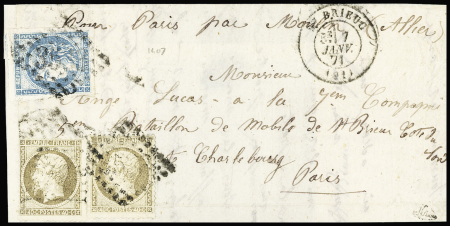 Pour Paris par Moulins (Allier)
ST BRIEUC
7
JANV.
71
(21)
1107
Monsieur
Ange Lucas à la 7em Compagnie
5e Bataillon de Mobile de St Brieuc Cote du
Nord
Charlebourg
Paris
EMPIRE FRANC
POSTES
EMPIRE FRANC
POSTES